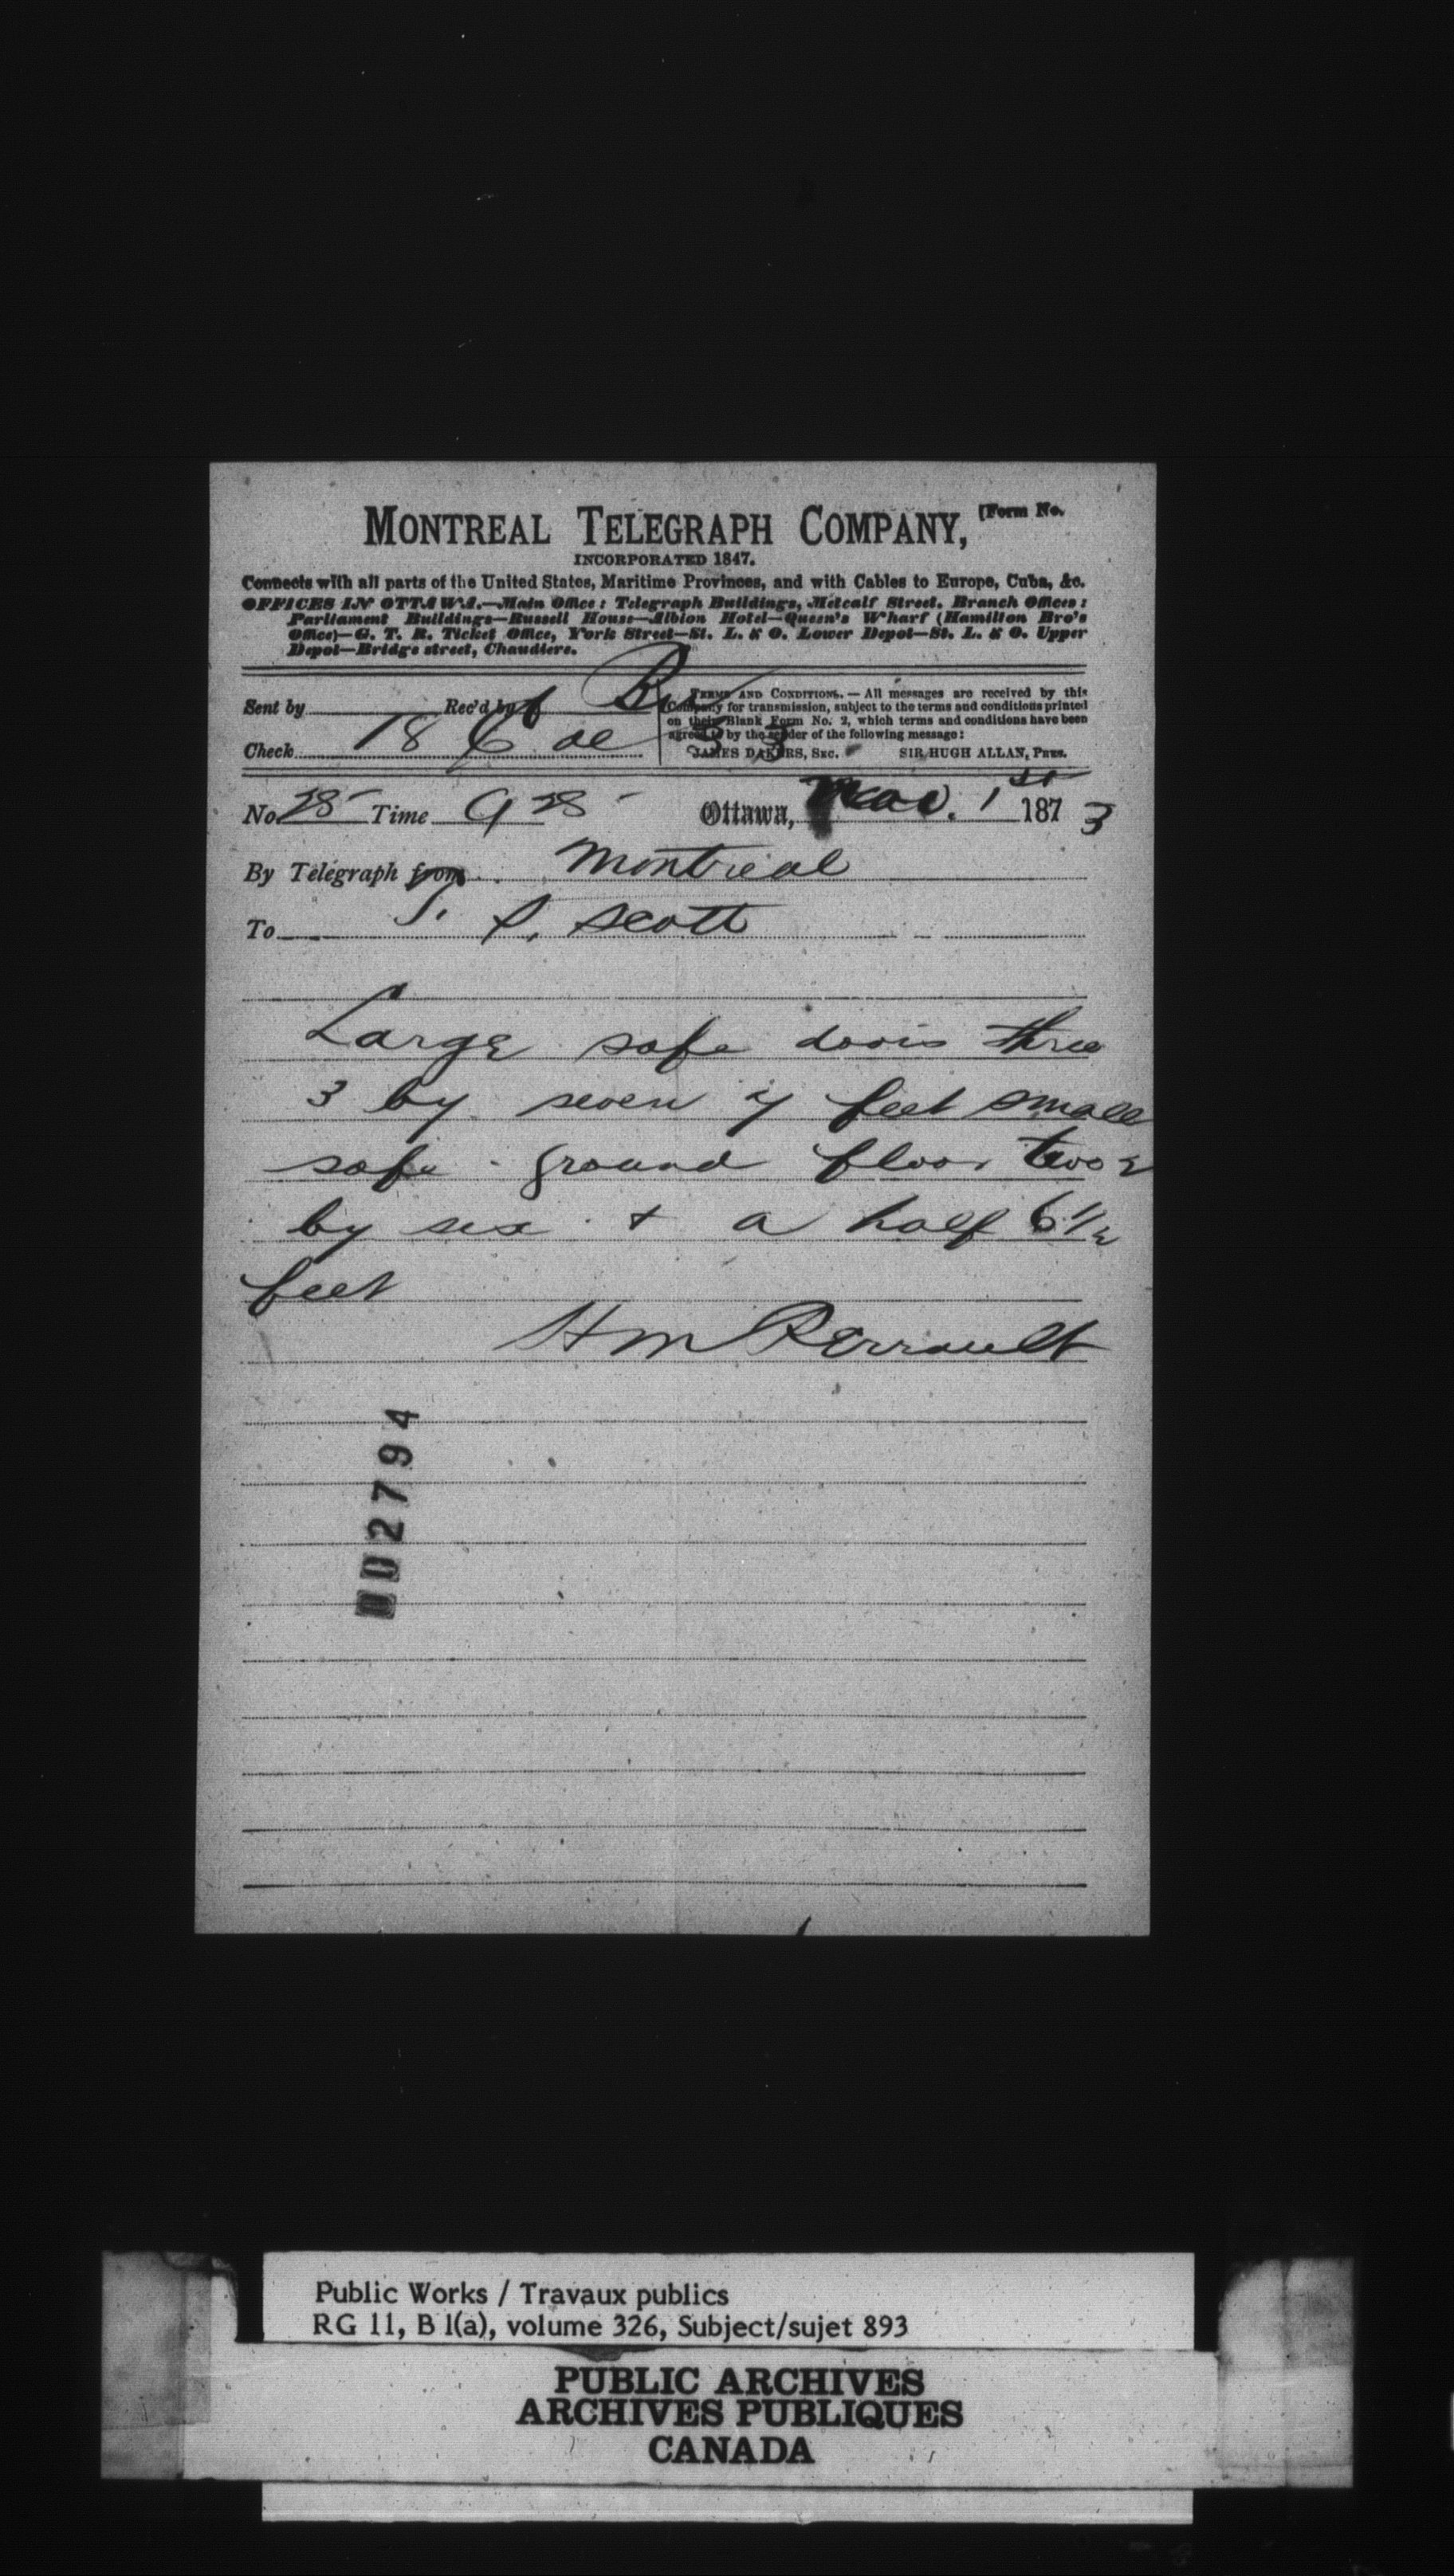 MONTREAL TELEGRAPH COMPANY, [Form No.
INCORPORATED 1847.
Connects with all parts of the United States, Maritime Provinces, and with Cables to Europe, Cuba, &c.
OFFICES IN OTTAWA.—Main Office: Telegraph Buildings, Metcalf Street. Branch Offices:
Parliament Buildings—Russell House—Albion Hotel—Queen's Wharf (Hamilton Bro's
Office)—G. T. R. Ticket Office, York Street—St. L. & O. Lower Depot—St. L. & O. Upper
Depot—Bridge street, Chaudiere.
Sent by Rec'd by
TERMS AND CONDITIONS.—All messages are received by this
Company for transmission, subject to the terms and conditions printed
on their Blank Form No. 2, which terms and conditions have been
agreed to by the sender of the following message:
JAMES DAKERS, SEC. SIR HUGH ALLAN, PRES.
Check 18 33
No. 28 Time 9 28 Ottawa, Mar. 1st 1873
By Telegraph from Montreal
To T. S. Scott
Large safe doors three
3 by seven 7 feet small
safe ground floor two 2
by six & a half 6 1/2
feet
H m Perrault
002794
Public Works / Travaux publics
RG 11, B 1(a), volume 326, Subject/sujet 893
PUBLIC ARCHIVES
ARCHIVES PUBLIQUES
CANADA